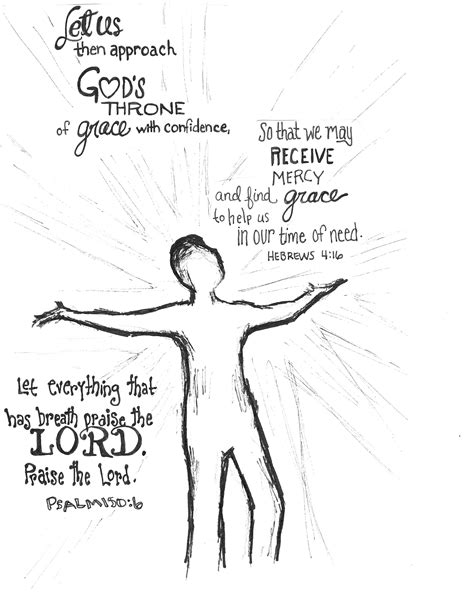 Let us
then approach
GOD'S
THRONE
of grace with confidence,
So that we may
RECEIVE
MERCY
and find grace
to help us
in our time of need.
HEBREWS 4:16
Let everything that
has breath praise the
LORD.
Praise the Lord.
PSALM 150:6